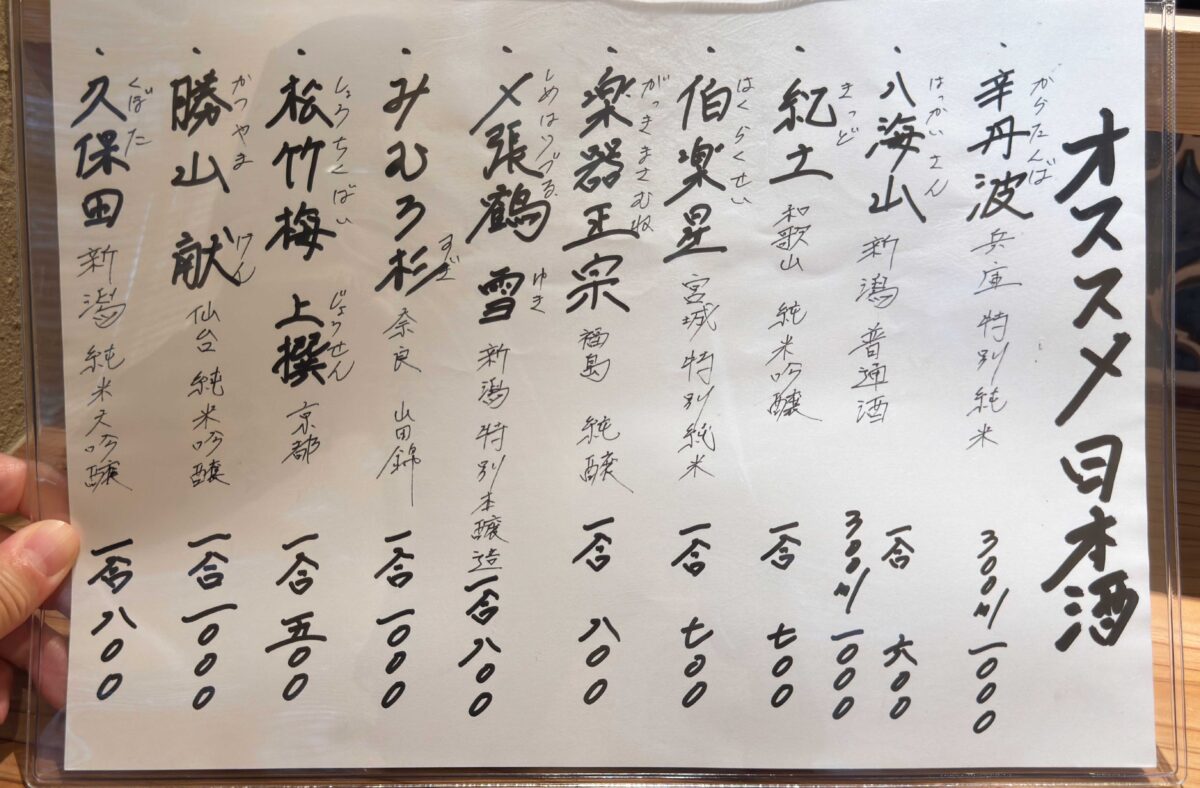 オススメ日本酒
・辛丹波 兵庫 特別純米 300ml 一〇〇〇
からたんば
・八海山 新潟 普通酒 一合 六〇〇
はっかいさん
300ml 一〇〇〇
・紀土 和歌山 純米吟醸 一合 七〇〇
きっど
・伯楽星 宮城 特別純米 一合 七〇〇
はくらくせい
・楽器正宗 福島 純醸 一合 八〇〇
がっきまさむね
・〆張鶴 雪 新潟 特別本醸造 一合 八〇〇
しめはりづる ゆき
・みむろ杉 奈良 山田錦 一合 一〇〇〇
すぎ
・松竹梅 上撰 京都 一合 五〇〇
しょうちくばい じょうせん
・勝山 献 仙台 純米吟醸 一合 一〇〇〇
かつやま けん
・久保田 新潟 純米大吟醸 一合 八〇〇
くぼた